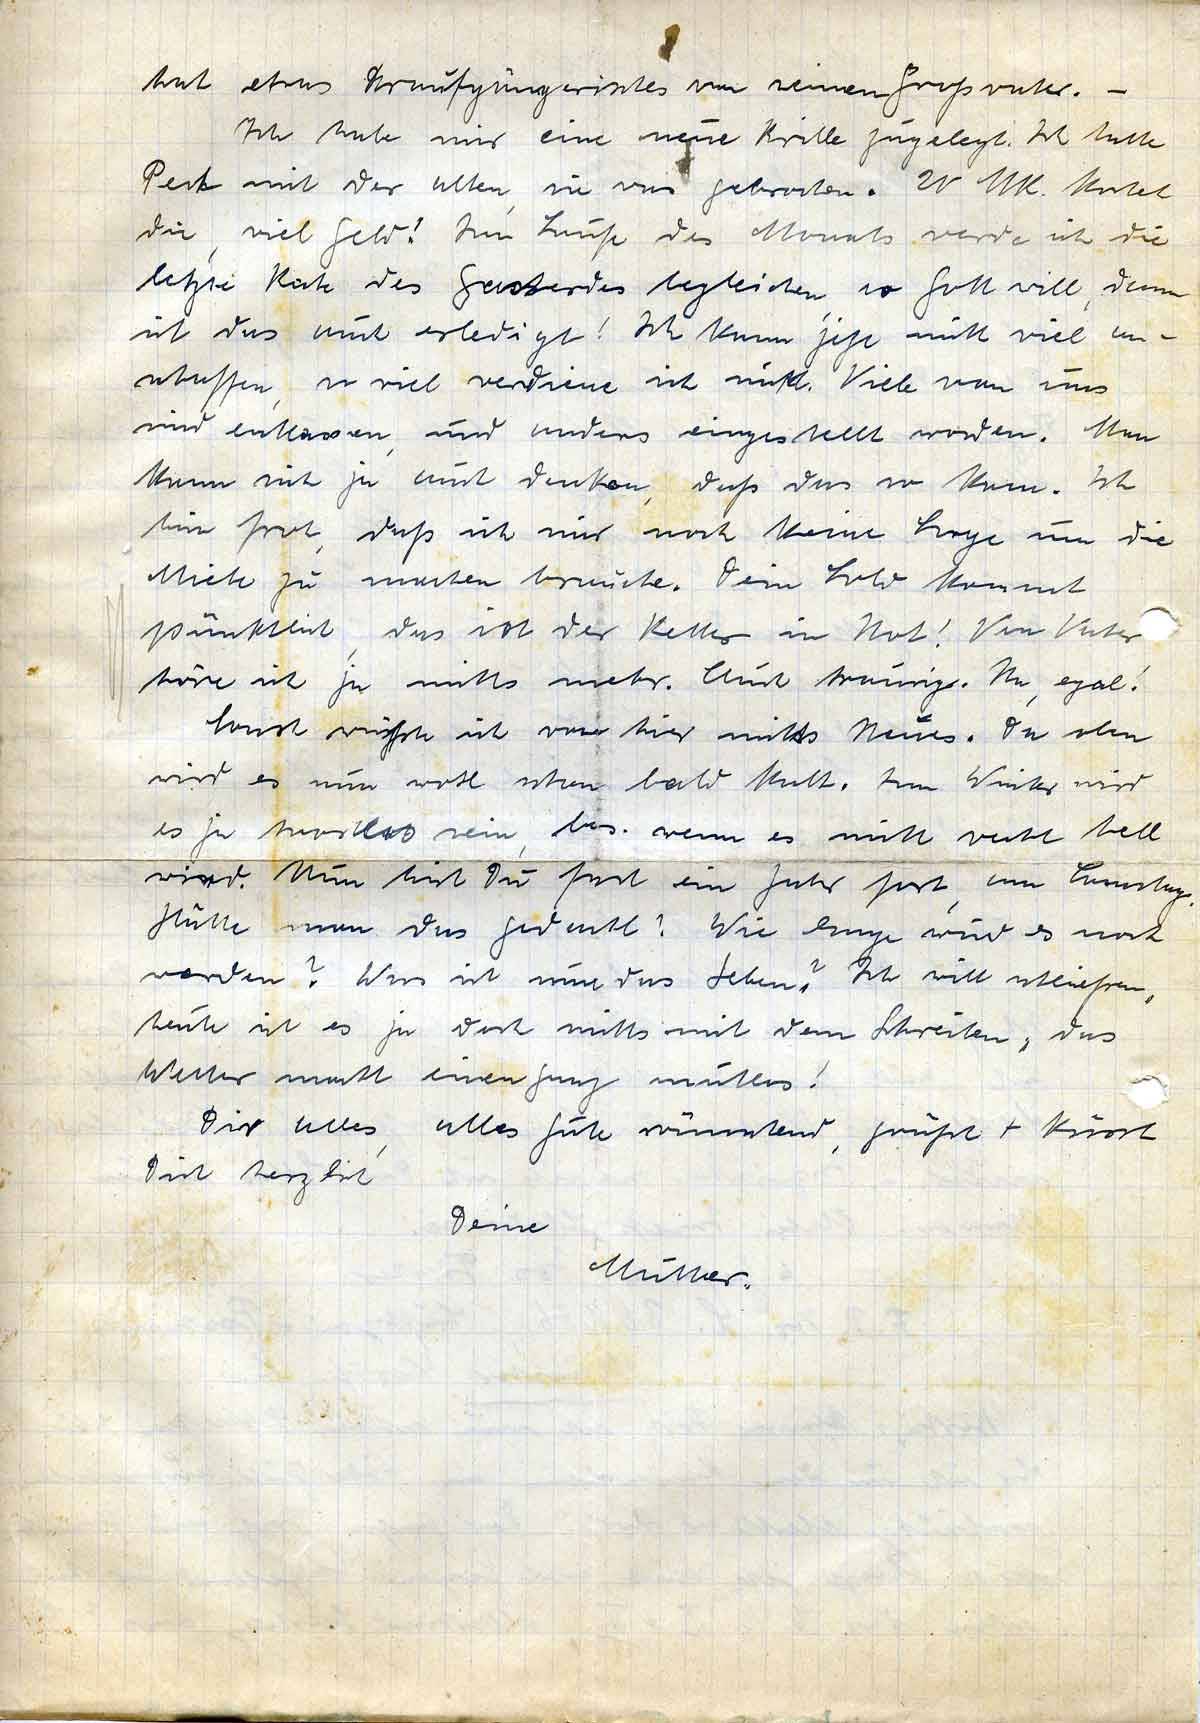 hat etwas Draufgängerisches von seinem Großvater. –
Ich habe mir eine neue Brille zugelegt. Ich hatte
Pech mit der alten, sie war gebrochen. 20 MK. kostet
die, viel Geld! Im Laufe des Monats werde ich die
letzte Rate des Gasherdes begleichen, so Gott will, dann
ist das auch erledigt! Ich kann jetzt nicht viel an-
schaffen, so viel verdiene ich nicht. Viele von uns
sind entlassen, und anders eingestellt worden. Man
kann sich ja auch denken, daß das so kam. Ich
bin froh, daß ich mir noch keine Sorge um die
Miete zu machen brauche. Dein Sold kommt
pünktlich, das ist der Retter in Not! Von Vater
höre ich ja nichts mehr. Auch traurig. Na, egal!
Sonst wüßte ich von hier nichts Neues. Da oben
wird es nun wohl schon bald kalt. Im Winter wird
es ja trostlos sein, bes. wenn es nicht recht hell
wird. Nun bist Du fast ein Jahr fort, am Samstag.
Hätte man das gedacht? Wie lange wird es noch
werden? Was ist nun das Leben? Ich will schließen,
heute ist es ja doch nichts mit dem Schreiben, das
Wetter macht einen ganz mutlos!
Dir alles, alles Gute wünschend, grüßt + küsst
Dich herzlich
Deine
Mutter.